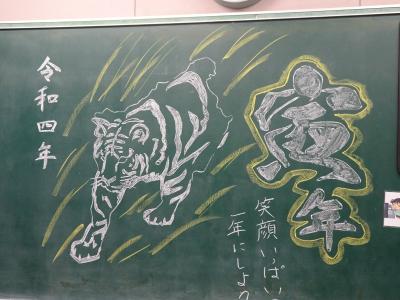 寅年
笑顔いっぱいの
一年にしよう
令和四年